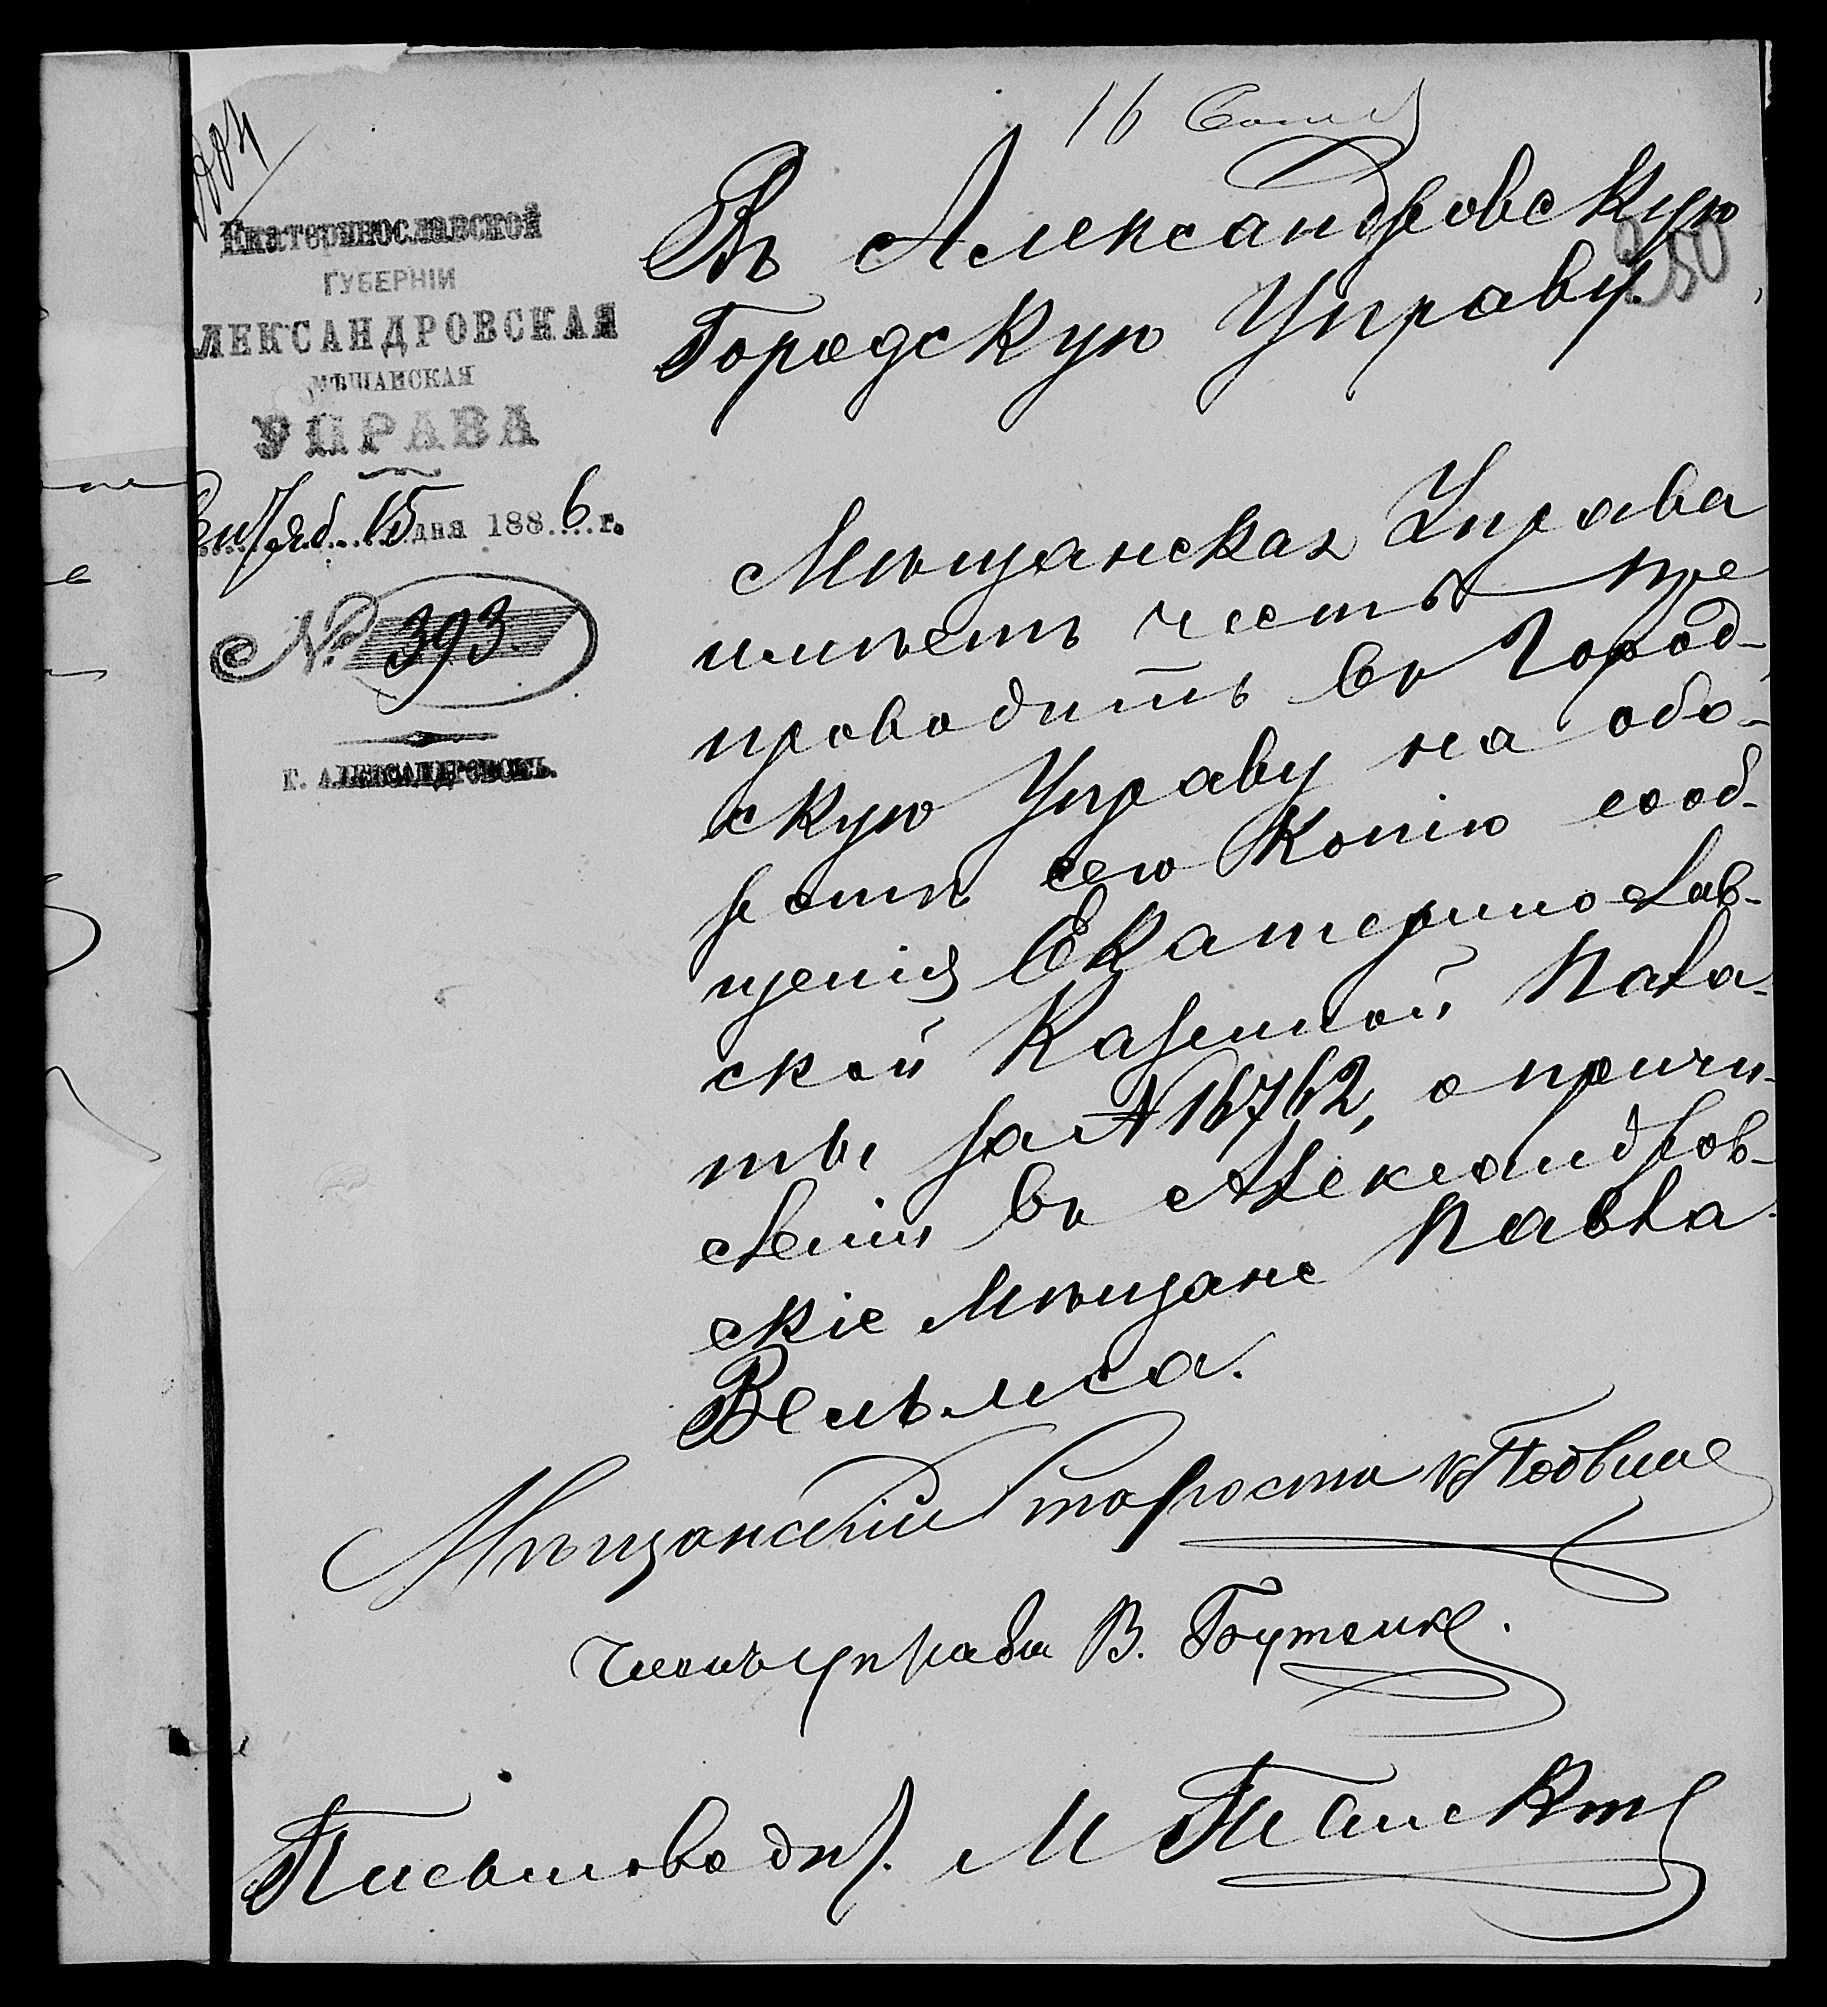 16 Сент
Екатеринославской
ГУБЕРНІИ
ЛЕКСАНДРОВСКАЯ
МѢЩАНСКАЯ
УПРАВА
Сентяб. 15 дня 1886 г.
№ 393.
Г. АЛЕКСАНДРОВСКЪ.
Въ Александровскую
Городскую Управу.
280
Мѣщанская Управа
имѣетъ честь пре
проводить въ Город-
скую Управу на обо-
ротѣ сего копію сооб-
щенія Екатеринослав-
ской Казенной Пала-
ты за № 16762, о причи-
сленіи въ Александров-
скіе мѣщане Павла
Вельмса.
Мѣщанскій Староста
Членъ управы В. Гоутенко.
Письмоводит. М